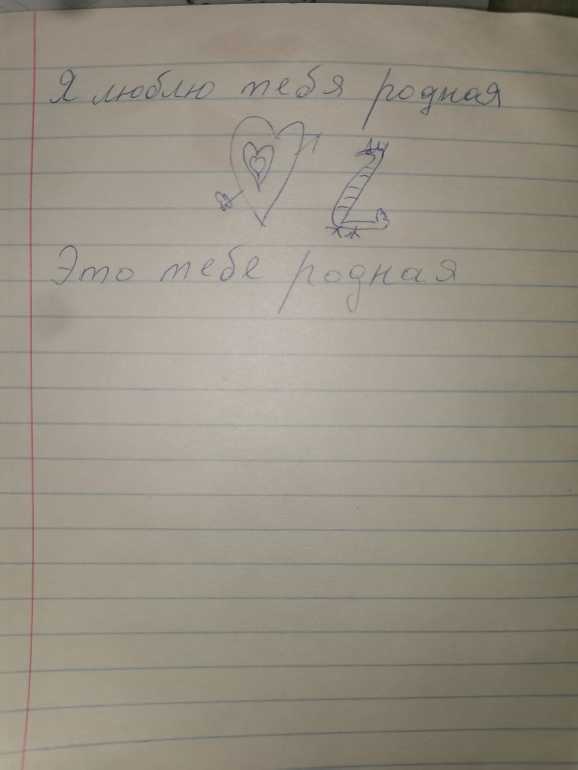 Я люблю тебя родная
Это тебе родная